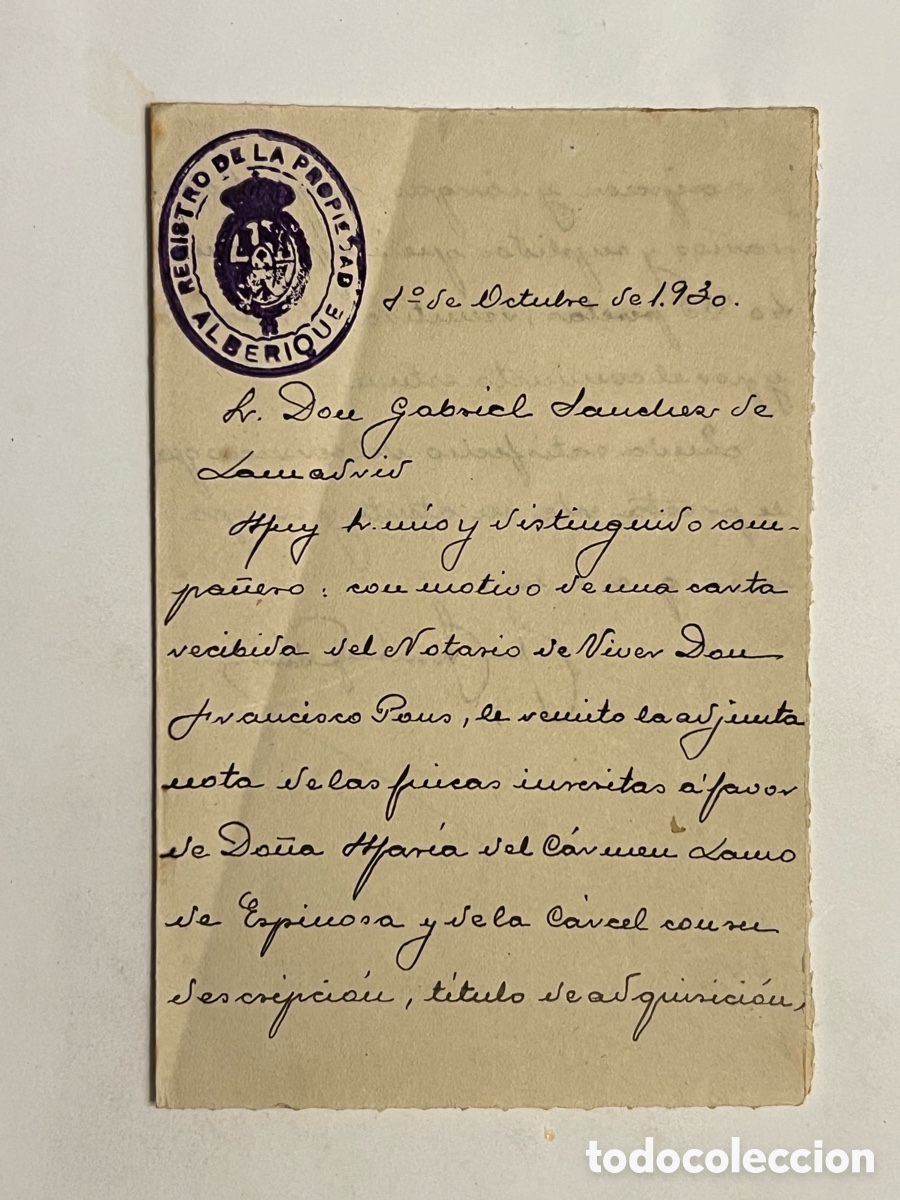 REGISTRO DE LA PROPIEDAD
ALBERIQUE
1º de Octubre de 1.930.
Sr. Don Gabriel Sanchez de
Lamadrid
Muy Sr. mio y distinguido com-
pañero: con motivo de una carta
recibida del Notario de Viver Don
Francisco Pons, le remito la adjunta
nota de las fincas inscritas á favor
de Doña María del Cármen Lamo
de Espinosa y de la Cárcel con su
descripción, título de adquisición,
todocoleccion